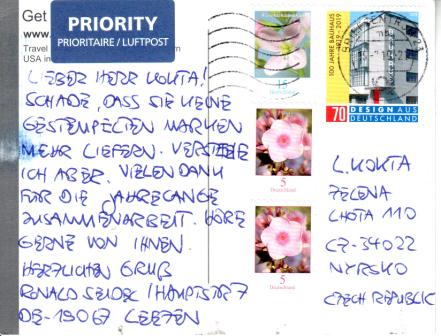 Get
www.
Travel
USA in
PRIORITY
PRIORITAIRE / LUFTPOST
LIEBER HERR KOKTA!
SCHADE, DASS SIE KEINE
GESTEMPELTEN MARKEN
MEHR LIEFERN. VERSTEHE
ICH ABER. VIELEN DANK
FÜR DIE JAHRELANGE
ZUSAMMENARBEIT. HÖRE
GERNE VON IHNEN.
HERZLICHEN GRUß
RONALD / HAUPTSTR 7
DE-19067 LEEZEN
15
100 JAHRE BAUHAUS
1919-2019
70 DESIGN AUS
DEUTSCHLAND
5
Deutschland
5
Deutschland
L. KOKTA
ZELENA
LHOTA 110
CZ-34022
NYRSKO
CZECH REPUBLIC